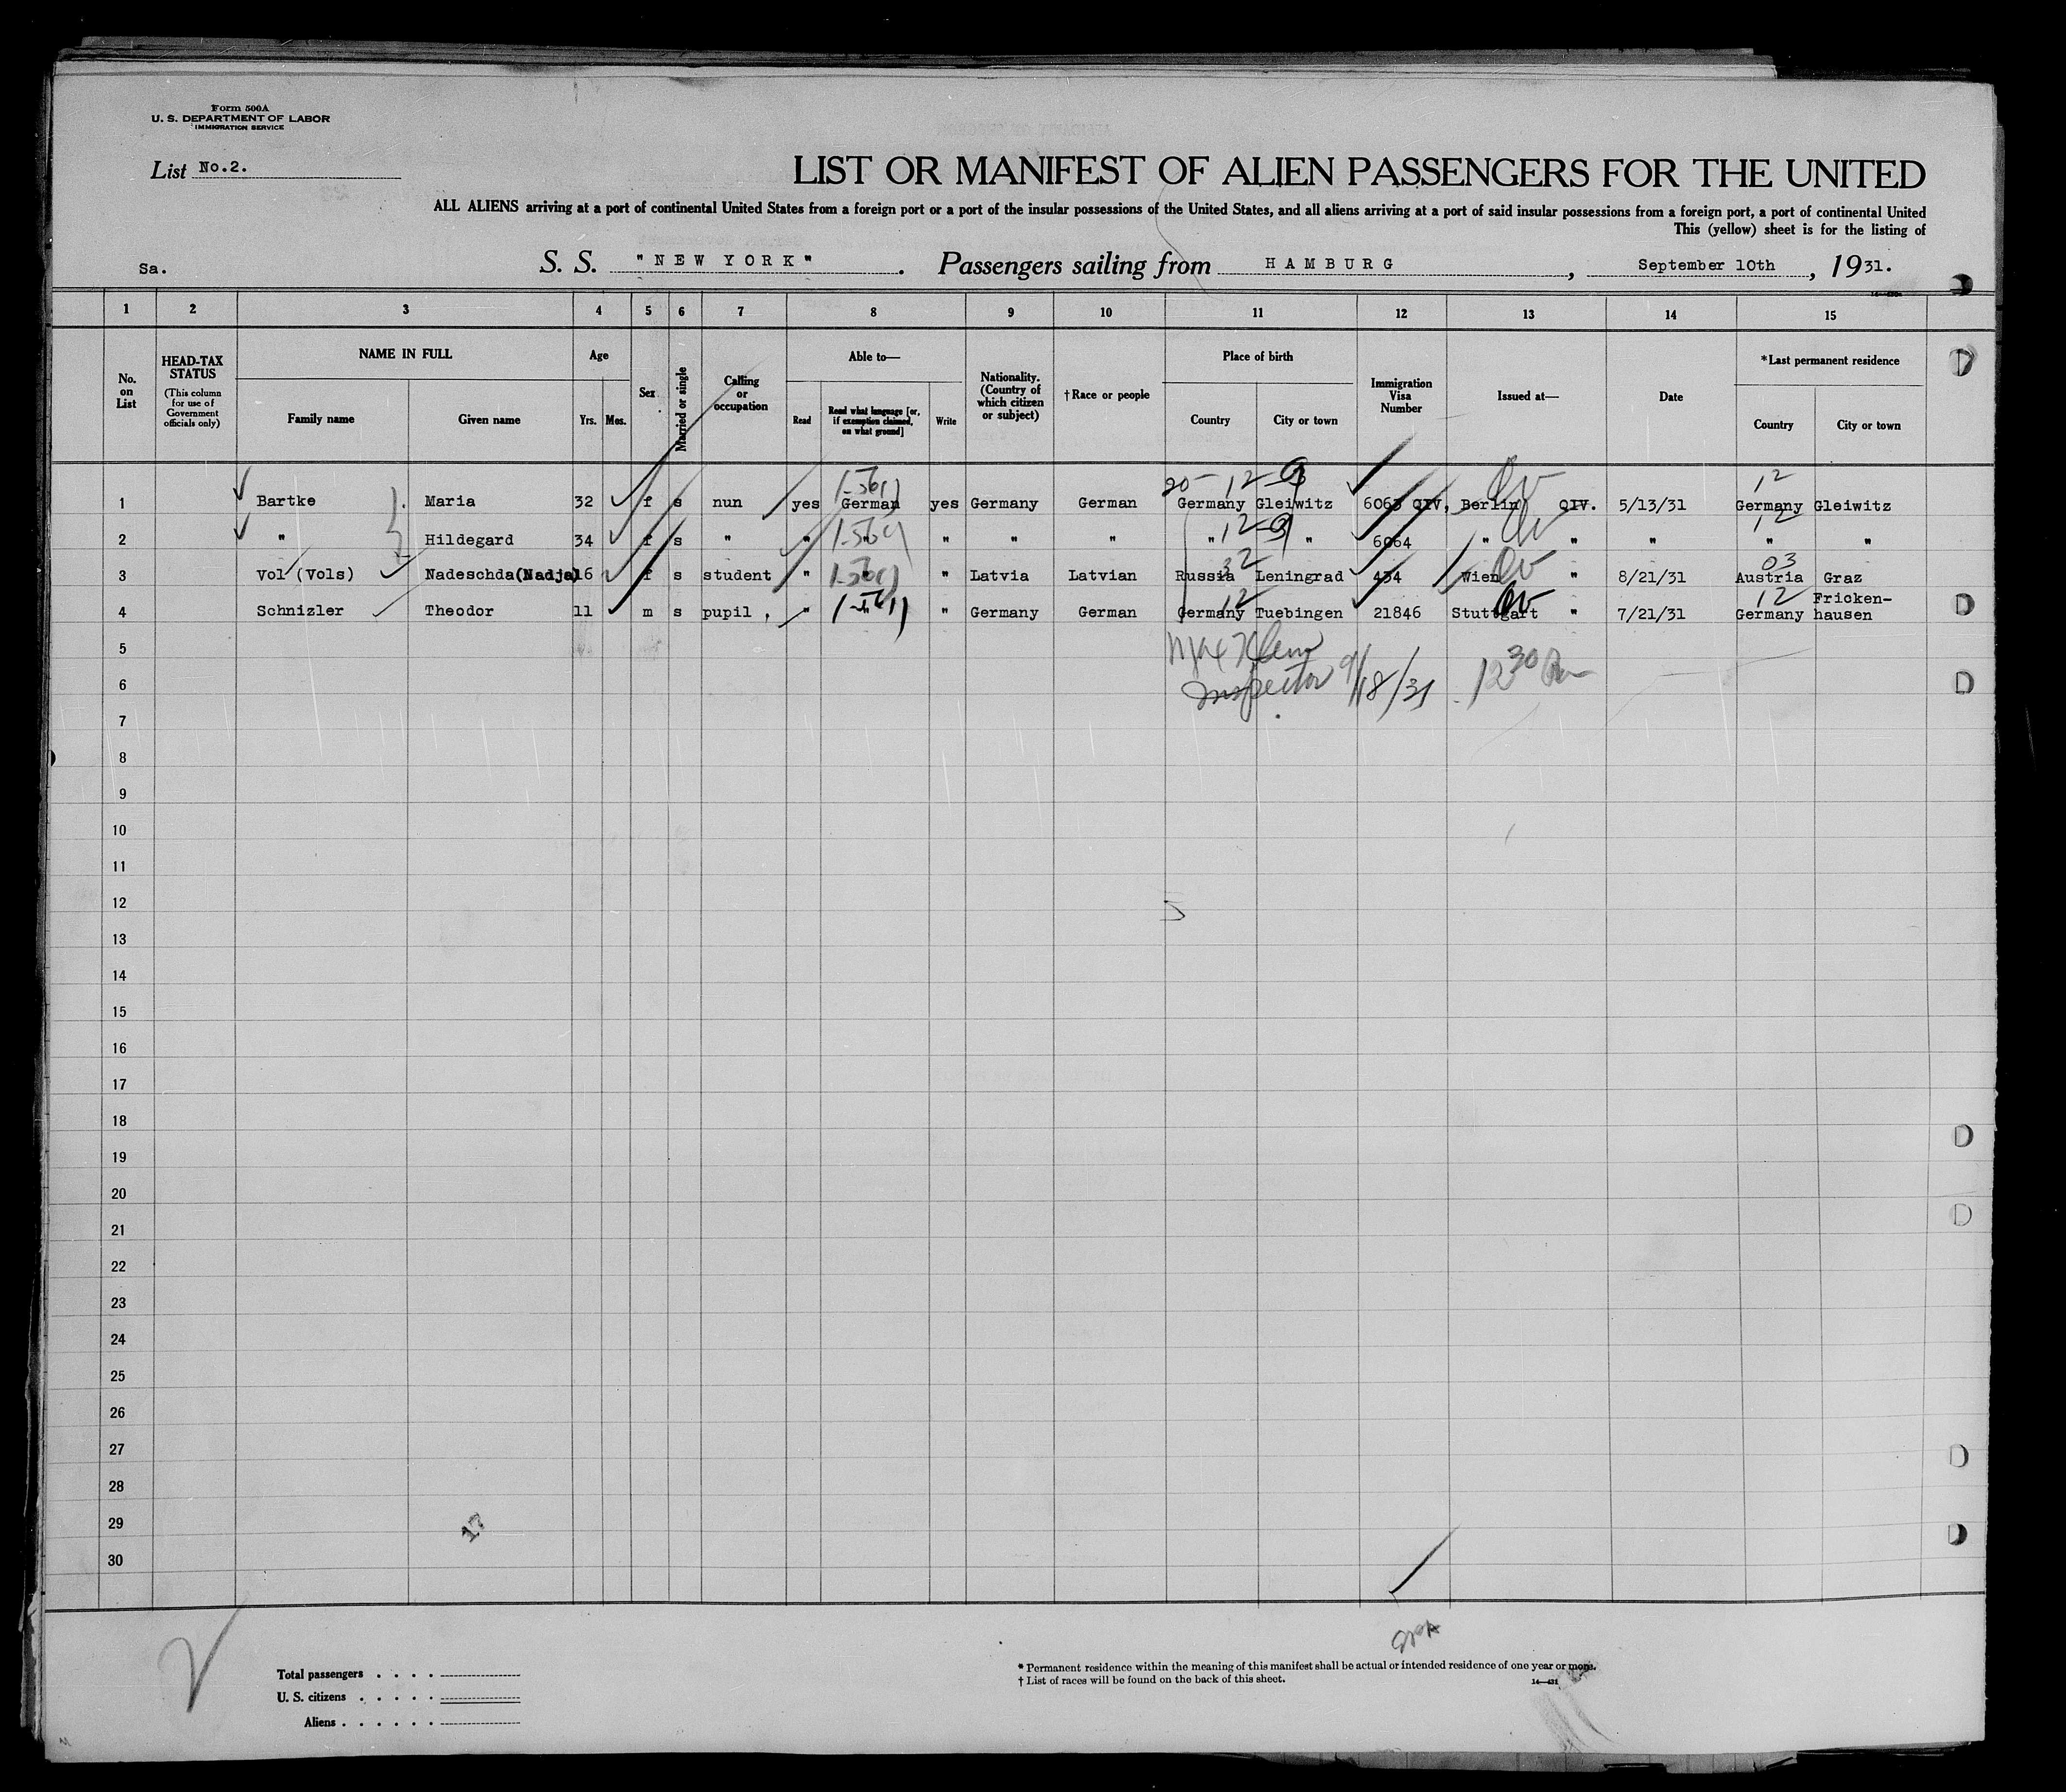 Form 500A
U. S. DEPARTMENT OF LABOR
IMMIGRATION SERVICE
List No.2.
LIST OR MANIFEST OF ALIEN PASSENGERS FOR THE UNITED
ALL ALIENS arriving at a port of continental United States from a foreign port or a port of the insular possessions of the United States, and all aliens arriving at a port of said insular possessions from a foreign port, a port of continental United
This (yellow) sheet is for the listing of
Sa. S. S. "NEW YORK" . Passengers sailing from HAMBURG , September 10th , 1931.
1 2 3 4 5 6 7 8 9 10 11 12 13 14 15
No. on List
HEAD-TAX STATUS
(This column for use of Government officials only)
NAME IN FULL
Family name Given name
Age
Yrs. Mos.
Sex
Married or single
Calling or occupation
Able to—
Read
Read what language [or, if exemption claimed, on what ground]
Write
Nationality. (Country of which citizen or subject)
†Race or people
Place of birth
Country City or town
Immigration Visa Number
Issued at—
Date
*Last permanent residence
Country City or town
20- 12 12
1 Bartke Maria 32 f s nun yes German yes Germany German Germany Gleiwitz 6063 QIV, Berlin QIV. 5/13/31 Germany Gleiwitz
12 12
2 " Hildegard 34 f s " " " " " " " " 6064 " " " " "
32 03
3 Vol (Vols) Nadeschda(Nadja) 16 f s student " " " Latvia Latvian Russia Leningrad 454 Wien " 8/21/31 Austria Graz
12 12
4 Schnizler Theodor 11 m s pupil , " " " Germany German Germany Tuebingen 21846 Stuttgart " 7/21/31 Germany Fricken-hausen
5
6 Inspector 9/18/31 12 30
7
8
9
10
11
12
13
14
15
16
17
18
19
20
21
22
23
24
25
26
27
28
29 17
30
Total passengers . . . .
U. S. citizens . . . . .
Aliens . . . . . .
* Permanent residence within the meaning of this manifest shall be actual or intended residence of one year or more.
† List of races will be found on the back of this sheet.